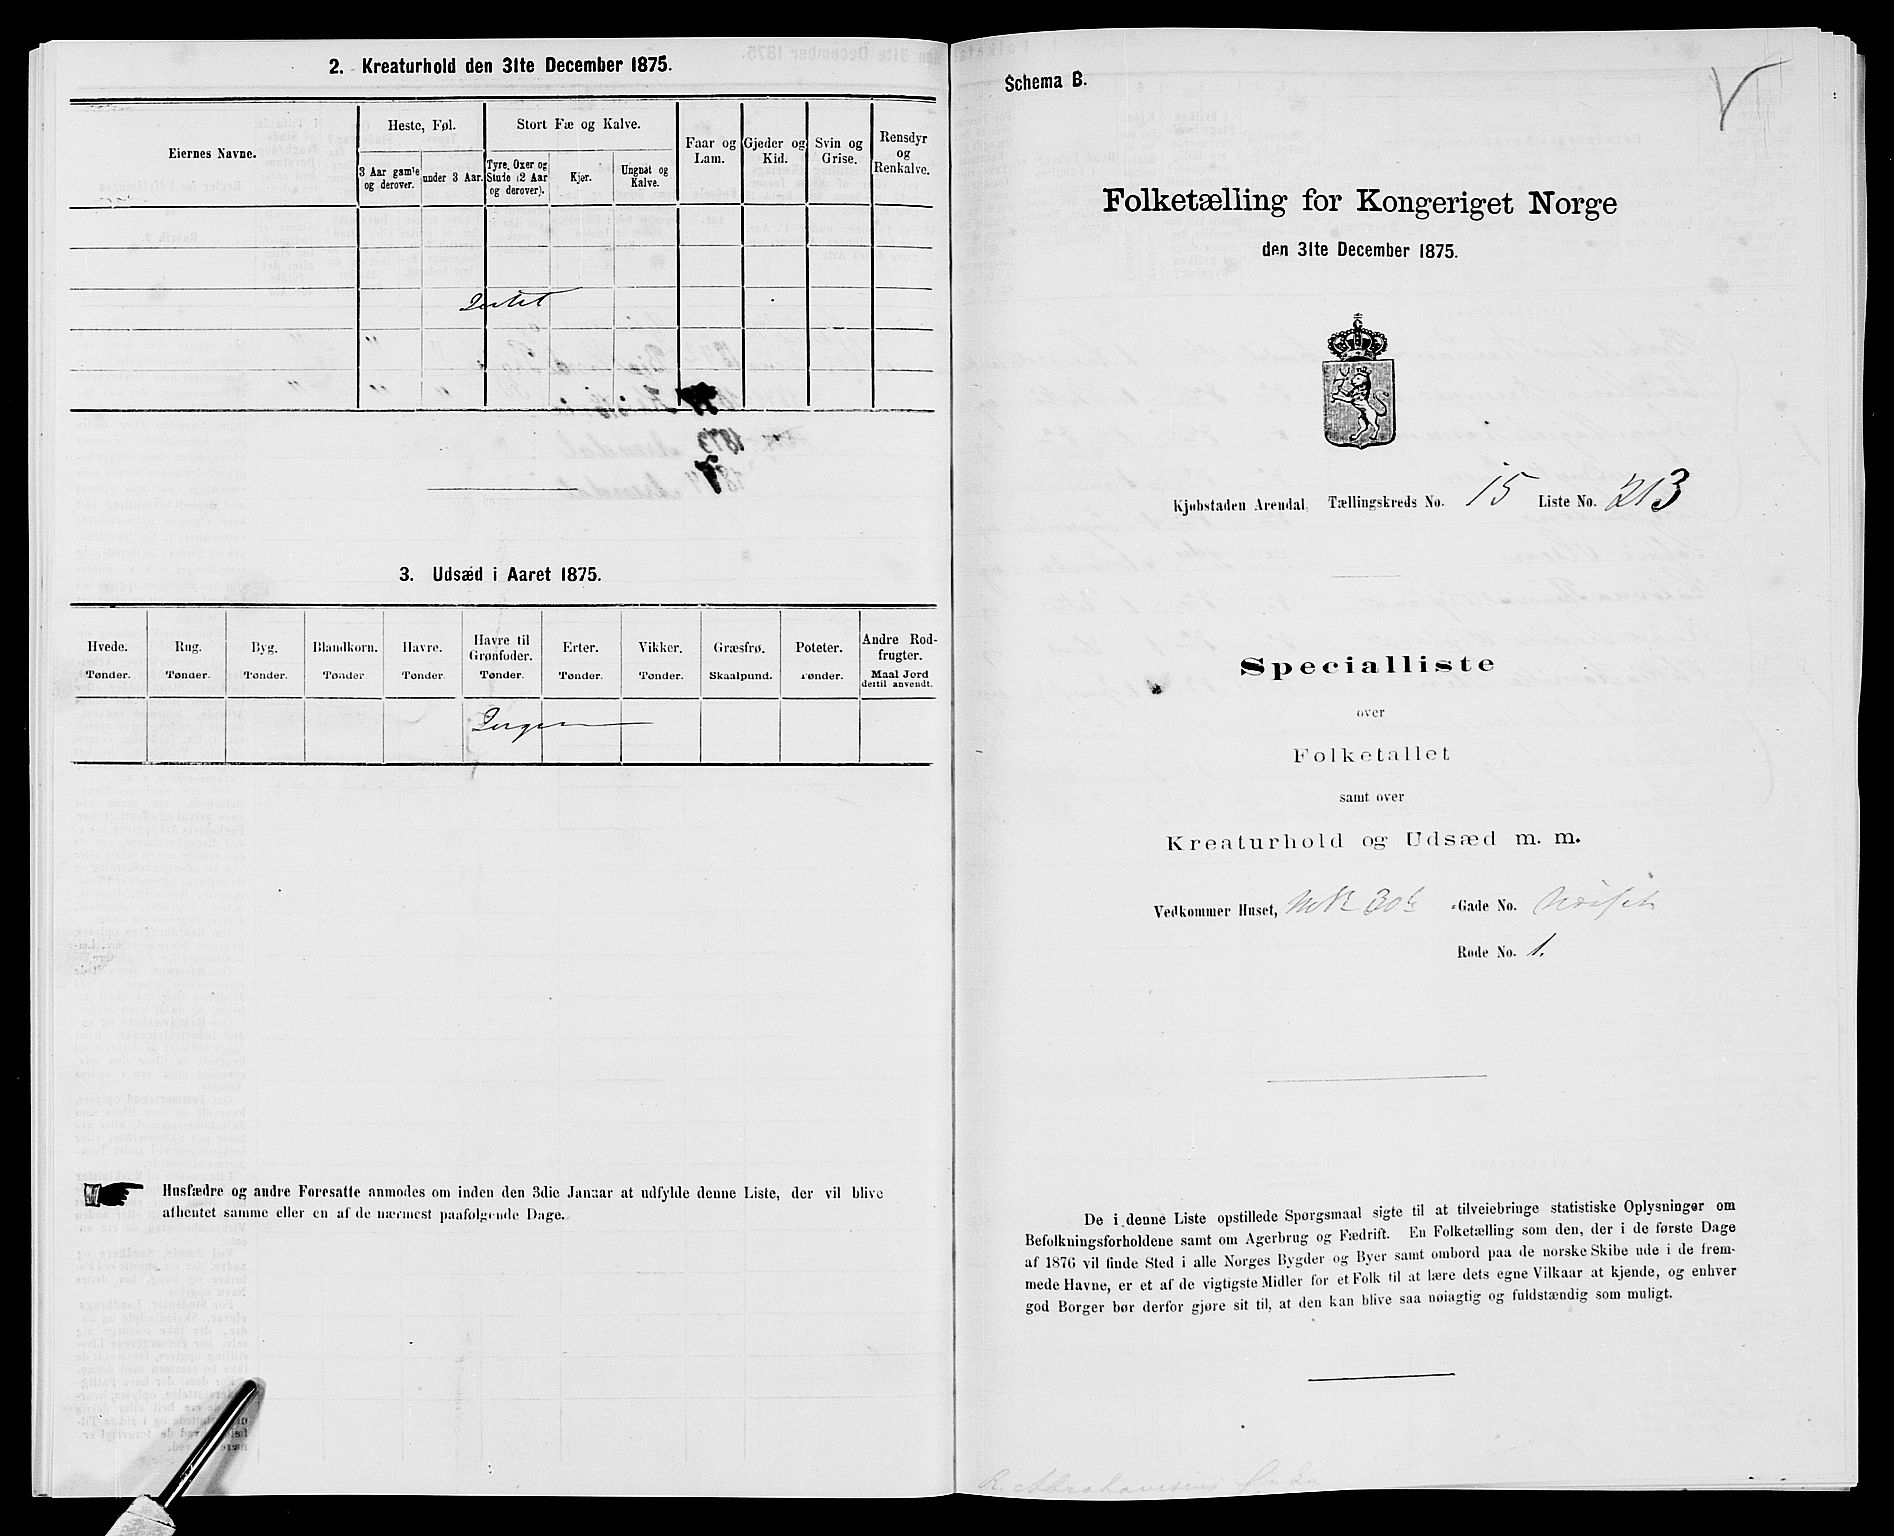 2. Kreaturhold den 31te December 1875.
Eiernes Navne.
Heste, Føl.
Stort Fæ og Kalve.
Faar og Lam.
Gjeder og Kid.
Svin og Grise.
Rensdyr og Renkalve.
3 Aar gamle og derover.
under 3 Aar.
Tyre, Oxer og Stude (2 Aar og derover).
Kjør.
Ungnøt og Kalve.
3. Udsæd i Aaret 1875.
Hvede. Rug. Byg. Blandkorn. Havre. Havre til Grønfoder. Erter. Vikker. Græsfrø. Poteter. Andre Rodfrugter.
Tønder. Tønder. Tønder. Tønder Tønder. Tønder. Tønder. Tønder. Skaalpund. Tønder. Maal Jord dertil anvendt.
Husfædre og andre Foresatte anmodes om inden den 3die Januar at udfylde denne Liste, der vil blive
afhentet samme eller en af de nærmest paafølgende Dage.
Schema B.
Folketælling for Kongeriget Norge
den 31te December 1875.
Kjøbstaden Arendal. Tællingskreds No. 15 Liste No. 213
Specialliste
over
Folketallet
samt over
Kreaturhold og Udsæd m. m.
Vedkommer Huset, Gade No.
Rode No. 1.
De i denne Liste opstillede Spørgsmaal sigte til at tilveiebringe statistiske Oplysninger om
Befolkningsforholdene samt om Agerbrug og Fædrift. En Folketælling som den, der i de første Dage
af 1876 vil finde Sted i alle Norges Bygder og Byer samt ombord paa de norske Skibe ude i de frem-
mede Havne, er et af de vigtigste Midler for et Folk til at lære dets egne Vilkaar at kjende, og enhver
god Borger bør derfor gjøre sit til, at den kan blive saa nøiagtig og fuldstændig som muligt.